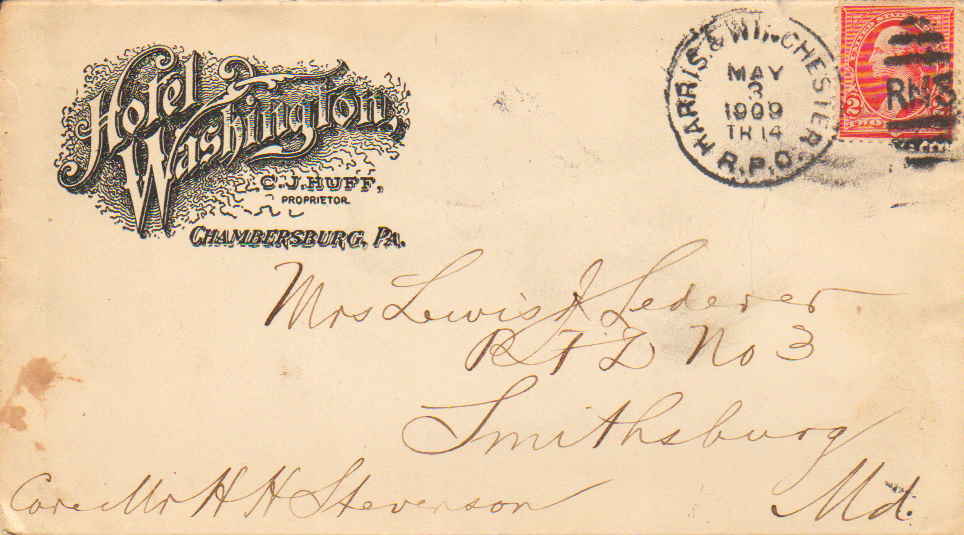 Hotel
Washington,
C. J. HUFF,
PROPRIETOR
CHAMBERSBURG, PA.
HARRIS. & WINCHESTER
MAY
3
1909
TR 14
R.P.O.
2
Mrs Lewis J Lederer
R F D No 3
Smithsburg
Md.
Care Mr H H Stevenson